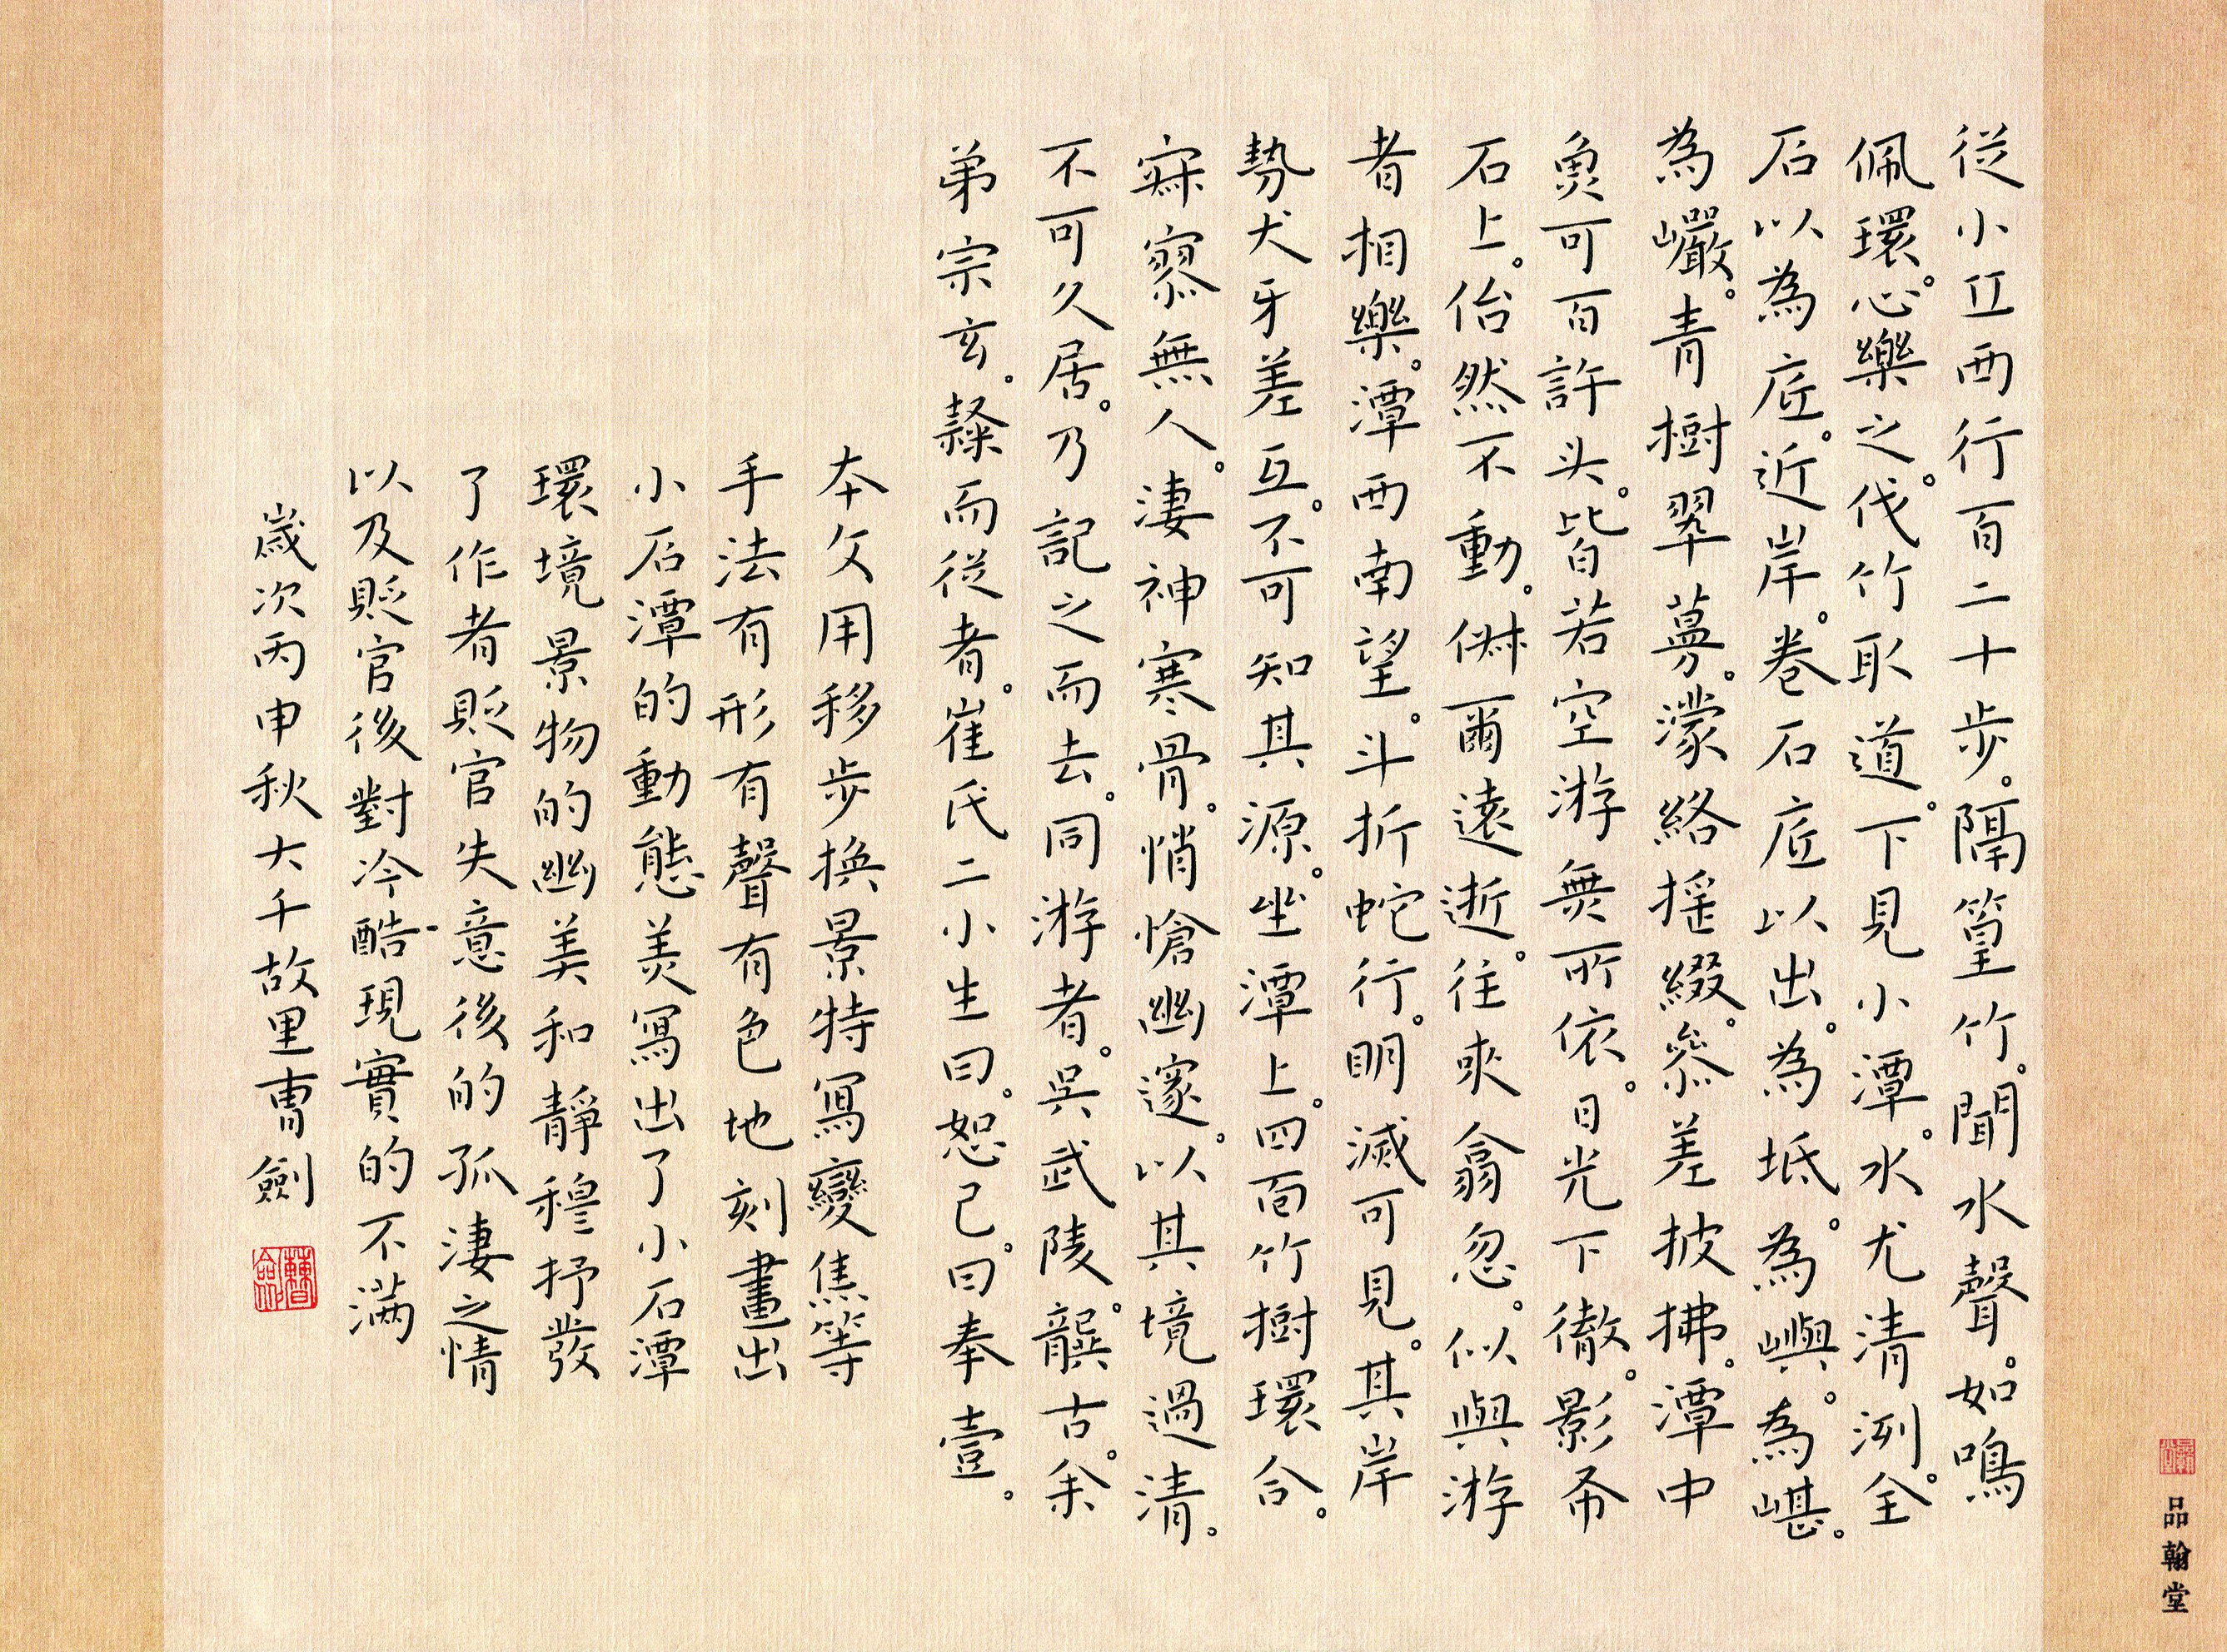 從小江西行百二十步。隔篁竹。聞水聲。如鳴
佩環。心樂之。伐竹取道。下見小潭。水尤清洌。全
石以為底。近岸。卷石底以出。為坻。為嶼。為嵁。
為巖。青樹翠蔓。濛絡搖綴。參差披拂。潭中
魚可百許头。皆若空游無所依。日光下徹。影布
石上。佁然不動。俶爾遠逝。往來翕忽。似與游
者相樂。潭西南望。斗折蛇行。明滅可見。其岸
勢犬牙差互。不可知其源。坐潭上。四面竹樹環合。
寂寥無人。淒神寒骨。悄愴幽邃。以其境過清。
不可久居。乃記之而去。同游者。吳武陵。龔古。余
弟宗玄。隸而從者。崔氏二小生曰。恕己。曰奉壹。
本文用移步換景特寫變焦等
手法有形有聲有色地刻畫出
小石潭的動態美寫出了小石潭
環境景物的幽美和靜穆抒發
了作者貶官失意後的孤淒之情
以及貶官後對冷酷現實的不滿
歲次丙申秋大千故里曹劍
品翰堂